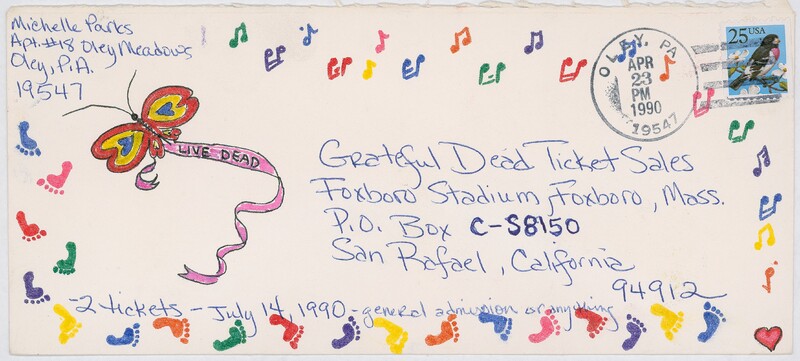 Michelle Parks
Apt.#18 Oley Meadows
Oley, P.A.
19547
25 USA
OLEY, PA
APR
23
PM
1990
19547
LIVE DEAD
Grateful Dead Ticket Sales
Foxboro Stadium, Foxboro, Mass.
P.O. Box C-S8150
San Rafael, California
94912
-2 tickets - July 14, 1990 - general admission or anything